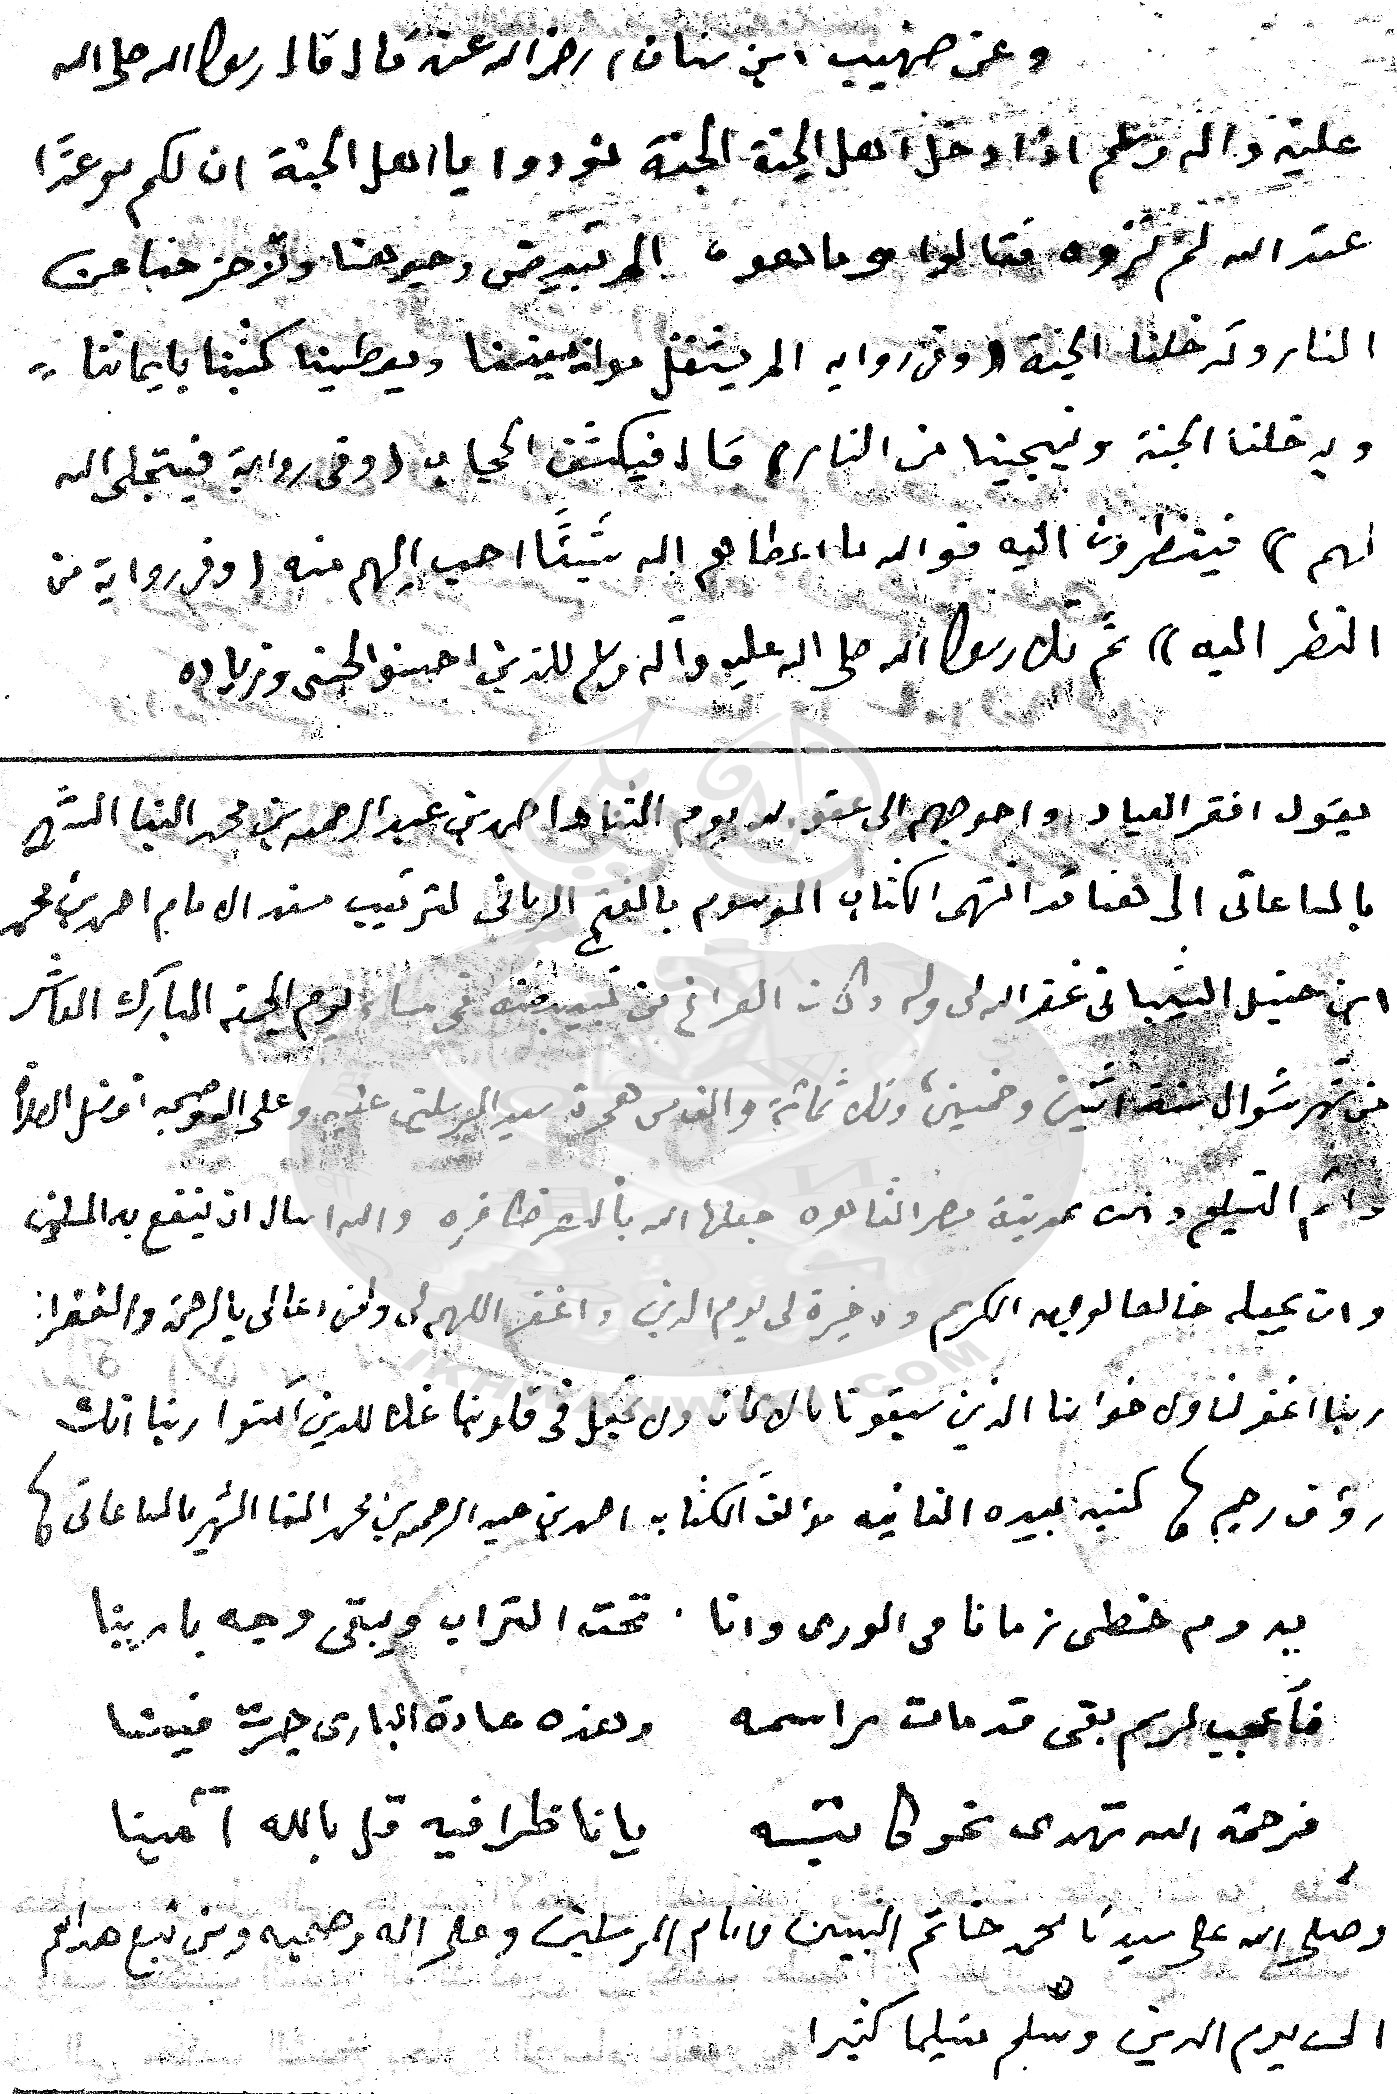 وعن صهيب ابن سنان رضى الله عنه قال قال رسول الله صلى الله
عليه وآله وسلم اذا دخل أهل الجنة الجنة نودوا يا اهل الجنة ان لكم موعدًا
عند الله لم تروه فقالوا وما هو؟ الم تبيض وجوهنا وتزحزحنا عن
النار وتدخلنا الجنة (وفى رواية الم يثقل موازيننا ويعطينا كتبنا بايماننا
ويدخلنا الجنة وينجينا من النار) قال فيكشف الحجاب (وفى رواية فيتجلى الله
لهم) فينظرون اليه فوالله ما اعطاهم الله شيئًا احب اليهم منه (وفى رواية من
النظر اليه) ثم تلا رسول الله صلى الله عليه وآله وسلم للذين احسنوا الحسنى وزياده
يقول افقر العباد واحوجهم الى عفو ربه يوم التناد احمد بن عبد الرحمن بن محمد البنا الشهير
بالساعاتى الى هنا قد انتهى الكتاب الموسوم بالفتح الربانى لترتيب مسند الامام احمد بن محمد
ابن حنبل الشيبانى غفر الله لى وله وكان الفراغ من تبييضه فى مساء يوم الجمعة المبارك العاشر
من شهر شوال سنة اثنين وخمسين وثلاثمائة والف من هجرة سيد المرسلين عليه وعلى آله وصحبه افضل الصلاة
واتم التسليم وذلك بمدينة مصر القاهره جعلها الله بالنصر ظافره والله اسال ان ينفع به المسلمين
وان يجعله خالصا لوجهه الكريم وذخيرة لى يوم الدين واغفر اللهم لى ولمن دعا لى بالرحمة والغفران
ربنا اغفر لنا ولاخواننا الذين سبقونا بالايمان ولا تجعل فى قلوبنا غلا للذين آمنوا ربنا انك
رؤف رحيم كتبه بيده الفانيه مؤلف الكتاب احمد بن عبد الرحمن بن محمد البنا الشهير بالساعاتى
يدوم خطى زمانا فى الورى وانا تحت التراب ويبقى وجه بارينا
فأعجب لرسم بقى قد مات راسمه وهذه عادة البارى جرت فينا
فرحمة الله تهدى نحو كاتبه يا ناظرا فيه قل بالله آمينا
وصلى الله على سيدنا محمد خاتم النبيين وامام المرسلين وعلى اله وصحبه ومن تبع هداهم
الى يوم الدين وسلم تسليما كثيرا